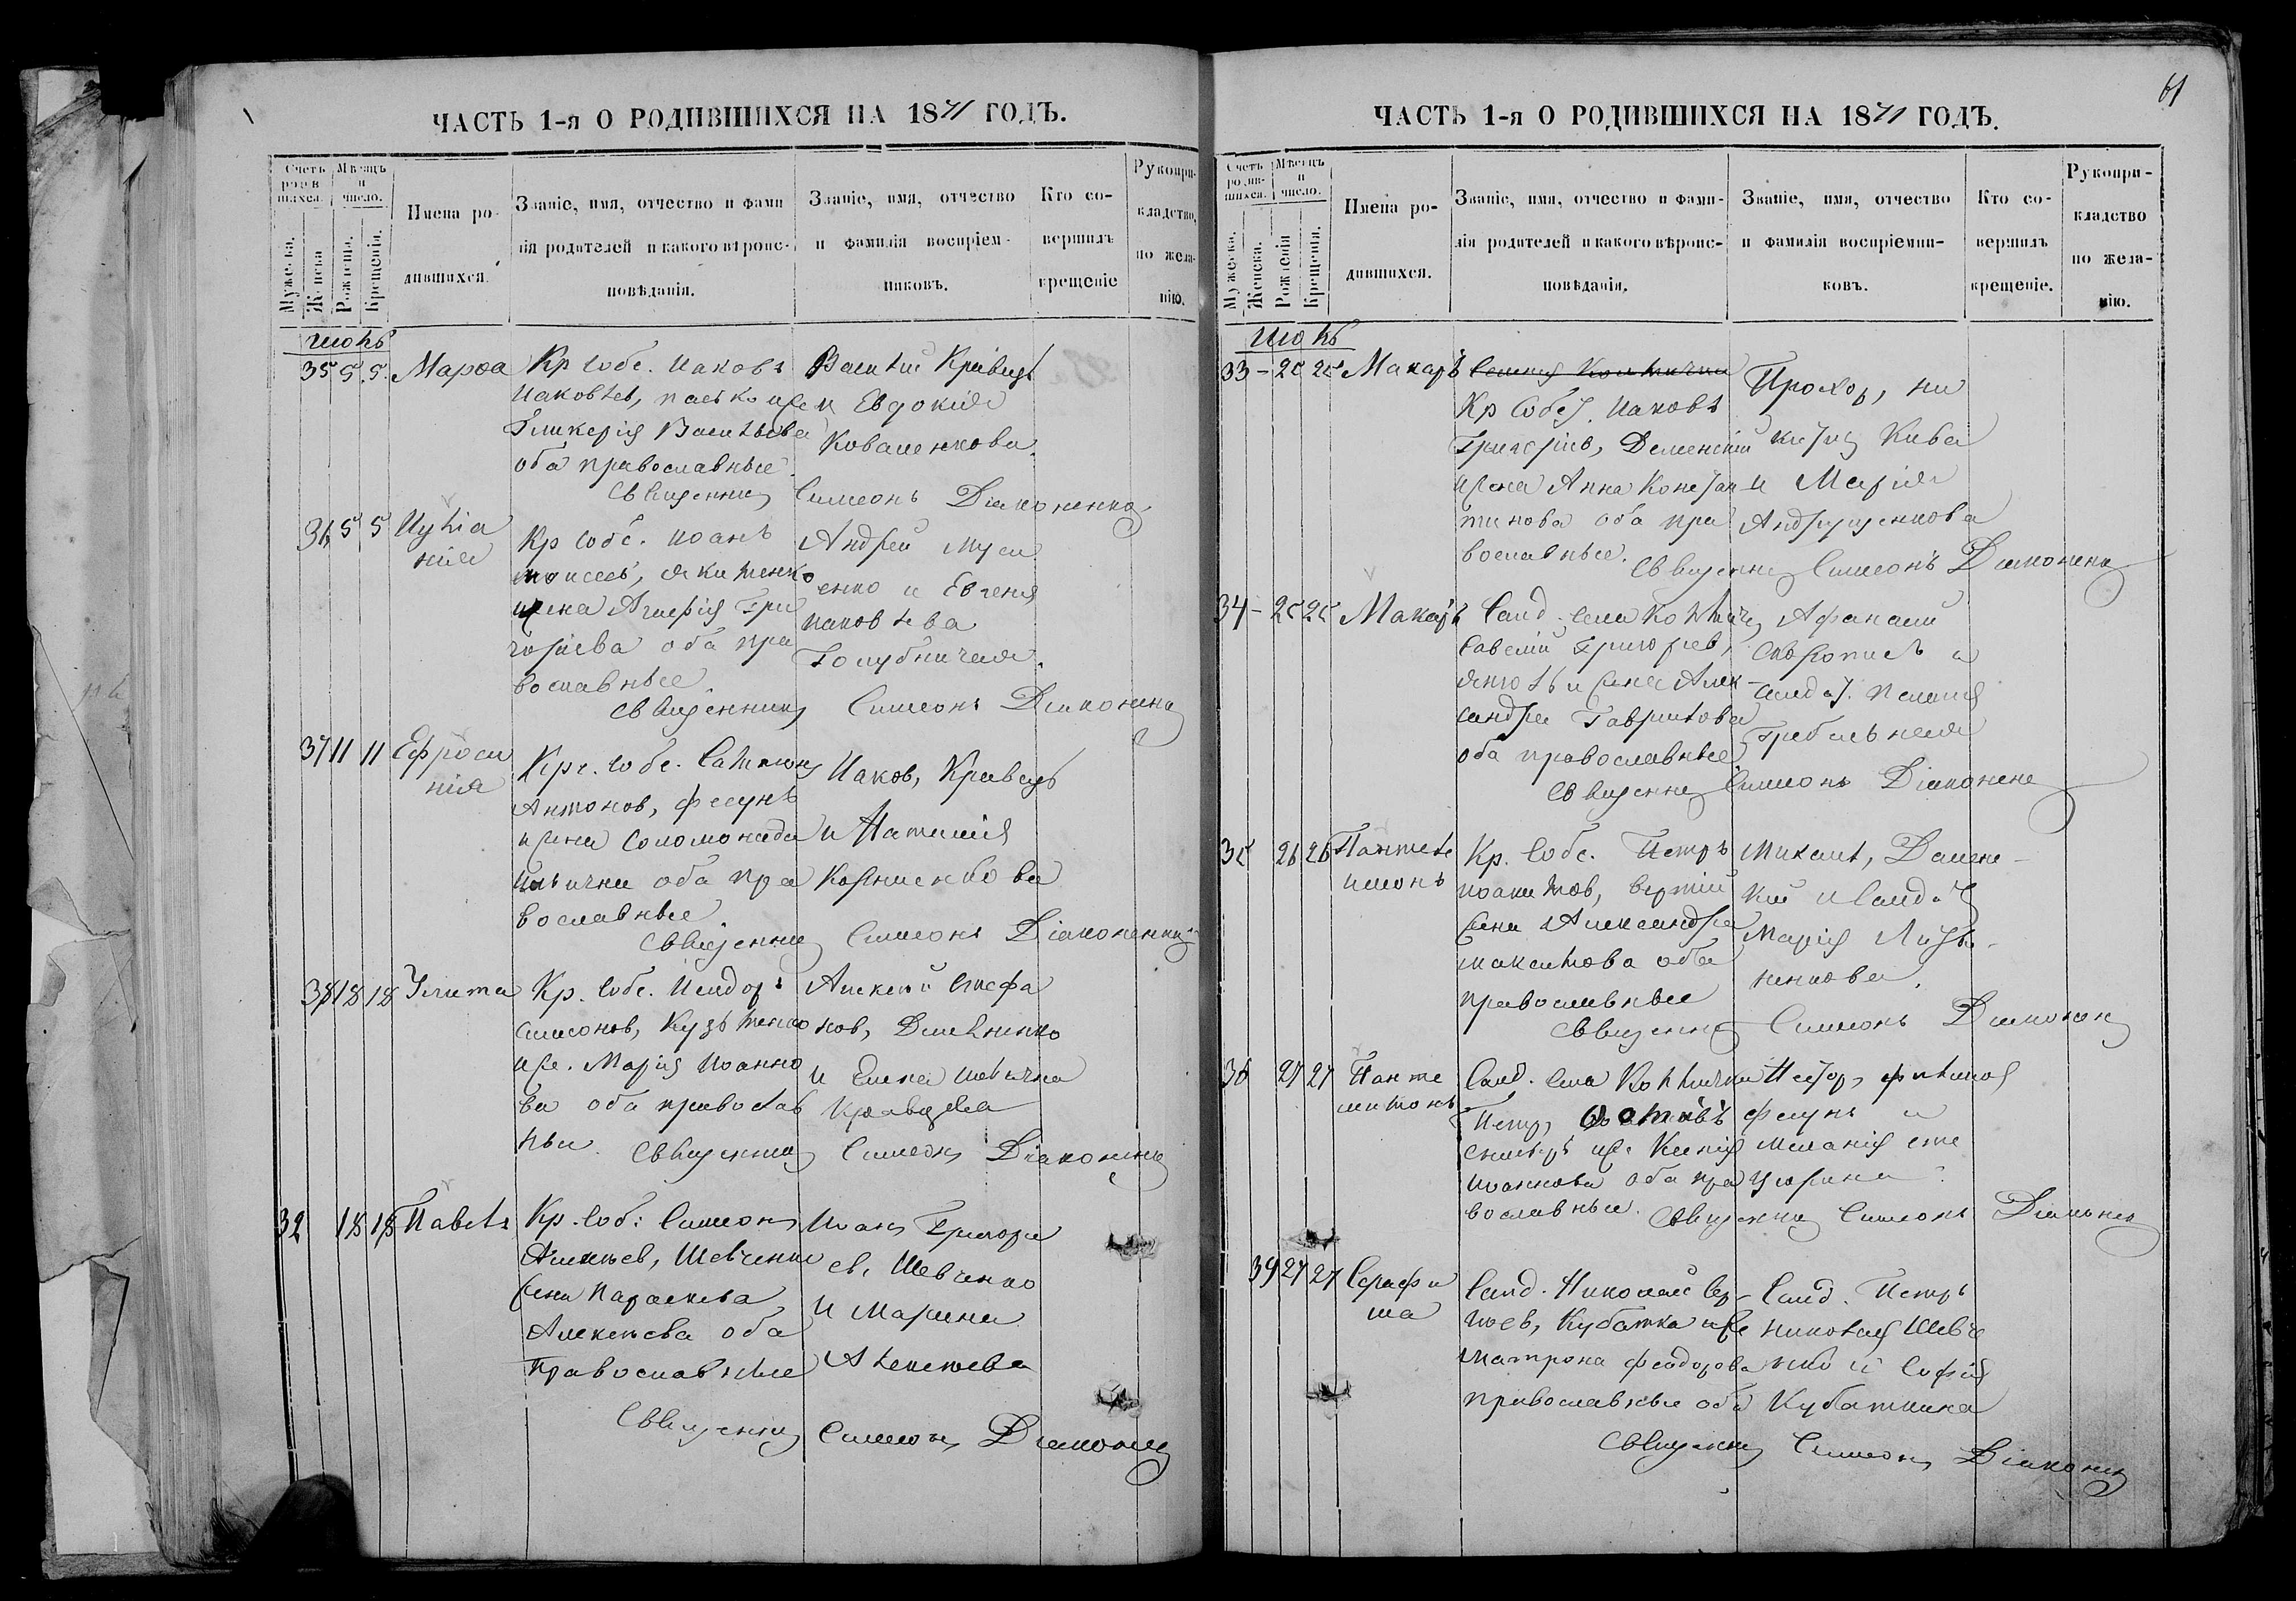 ЧАСТЬ 1-я О РОДИВШИХСЯ НА 1871 ГОДЪ.
Счетъ родив шихся.
Мѣсяцъ и число.
Мужеска.
Женска
Рожденія.
Крещенія.
Имена родившихся.
Званіе, имя, отчество и фами
лія родителей и какого вѣроис-
повѣданія.
Званіе, имя, отчество
и фамилія воспріем-
никовъ.
Кто со-
вершилъ
крещеніе
Рукопри-
кладство,
по жела-
нію.
Июль
35 5 5 Марѳа Кр собс. Иаковъ
Гликерія Васильева
оба православные.
Василій Кривецъ
и Евдокія
Коваленкова.
Священникъ Симеонъ Діаконенко
36 5 5
Кр собс. Иоанъ
Моисеев,
жена Агафія Гри
горіева оба пра
вославные
Андрей
енко и Евгенія
Иаковлева
Голубничая.
Священникъ Симеонъ Діаконенко
37 11 11 Ефроси
нія
Крс. собс.
Антонов, Фесунъ
жена Соломонида
Ильична оба пра
вославные
Иаков, Кривецъ
и Наталія
Корніенкова
Священникъ Симеонъ Діаконенко
38 18 18 Улита Кр. собс. Исидоръ
Симеонов, Кузьменко
же. Марія Иоанно
ва оба православ
ные
Алексѣй Стефа
нов,
и Елена
Кравцова
Священникъ Симеонъ Діаконенко
32 18 18 Павелъ Кр. соб: Симеонъ
Алексѣев, Шевченко
жена Параскева
Алексѣева оба
православные
Иоанъ Григорі
ев, Шевченко
и Марина
Алексѣева
Священникъ Симеонъ Діаконенко
61
ЧАСТЬ 1-я О РОДИВШИХСЯ НА 1871 ГОДЪ.
Счетъ родив-шихся.
Мѣсяцъ и число.
Мужеска.
Женска.
Рожденія
Крещенія.
Имена ро-
дившихся.
Званіе, имя, отчество и фами-
лія родителей и какого вѣроис-
повѣданія.
Званіе, имя, отчество
и фамилія воспріемни-
ковъ.
Кто со-
вершилъ
крещеніе.
Рукопри-
кладство
по жела-
нію.
Июль
33 - 25 25 Макаръ
Кр собст. Иаковъ
Григоріев, Деменскій
жена Анна Констан
тинова оба пра
вославные.
Прохор, Ни
китич Киба
и Марія
Андрущенкова
Священникъ Симеонъ Діаконенко
34 - 25 25 Макаръ Солд. села
Савелій Григорьев,
жена Алек-
сандра Гаврилова
оба православные
Афанасій
Скоропись и
солдат. Пелагія
Гребельная
Священникъ Симеонъ Діаконенко
35 26 26 Пантеле
имонъ
Кр. собс. Петръ
жена Александра
Максимова оба
православные
Михаил, Демен-
кій и солдат
Марія
Священникъ Симеонъ Діаконенко
36 27 27 Панте
лимонъ
Солд. села
Петр,
же. Ксенія
Иоаннова оба пра
вославные.
Нестор, Филипов
Фесунъ и
Меланія
Священникъ Симеонъ Діаконенко
39 27 27 Серафи
ма
Солд. Николай Сер-
гѣев, Кубатка же
Матрона Феодорова
православные оба
Солд. Петръ
Николай Шевче
нко и Софія
Кубаткина
Священникъ Симеонъ Діаконенко